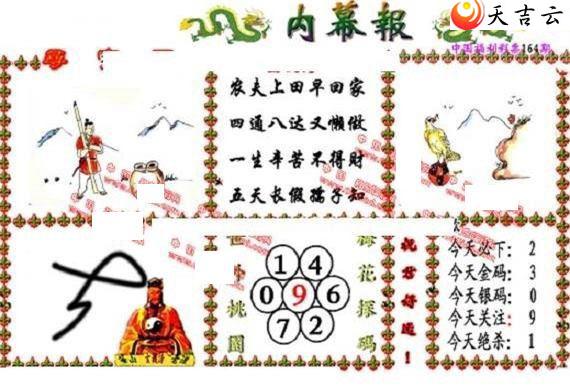 天吉云
内幕報
中国福利彩票164期
农夫上田早回家
四通八达又懒做
一生辛苦不得财
五天长假孺子知
世外桃園
1 4
0 9 6
7 2
梅花探码
祝君好运!
今天必下:2
今天金码:3
今天银码:0
今天关注:9
今天绝杀:1